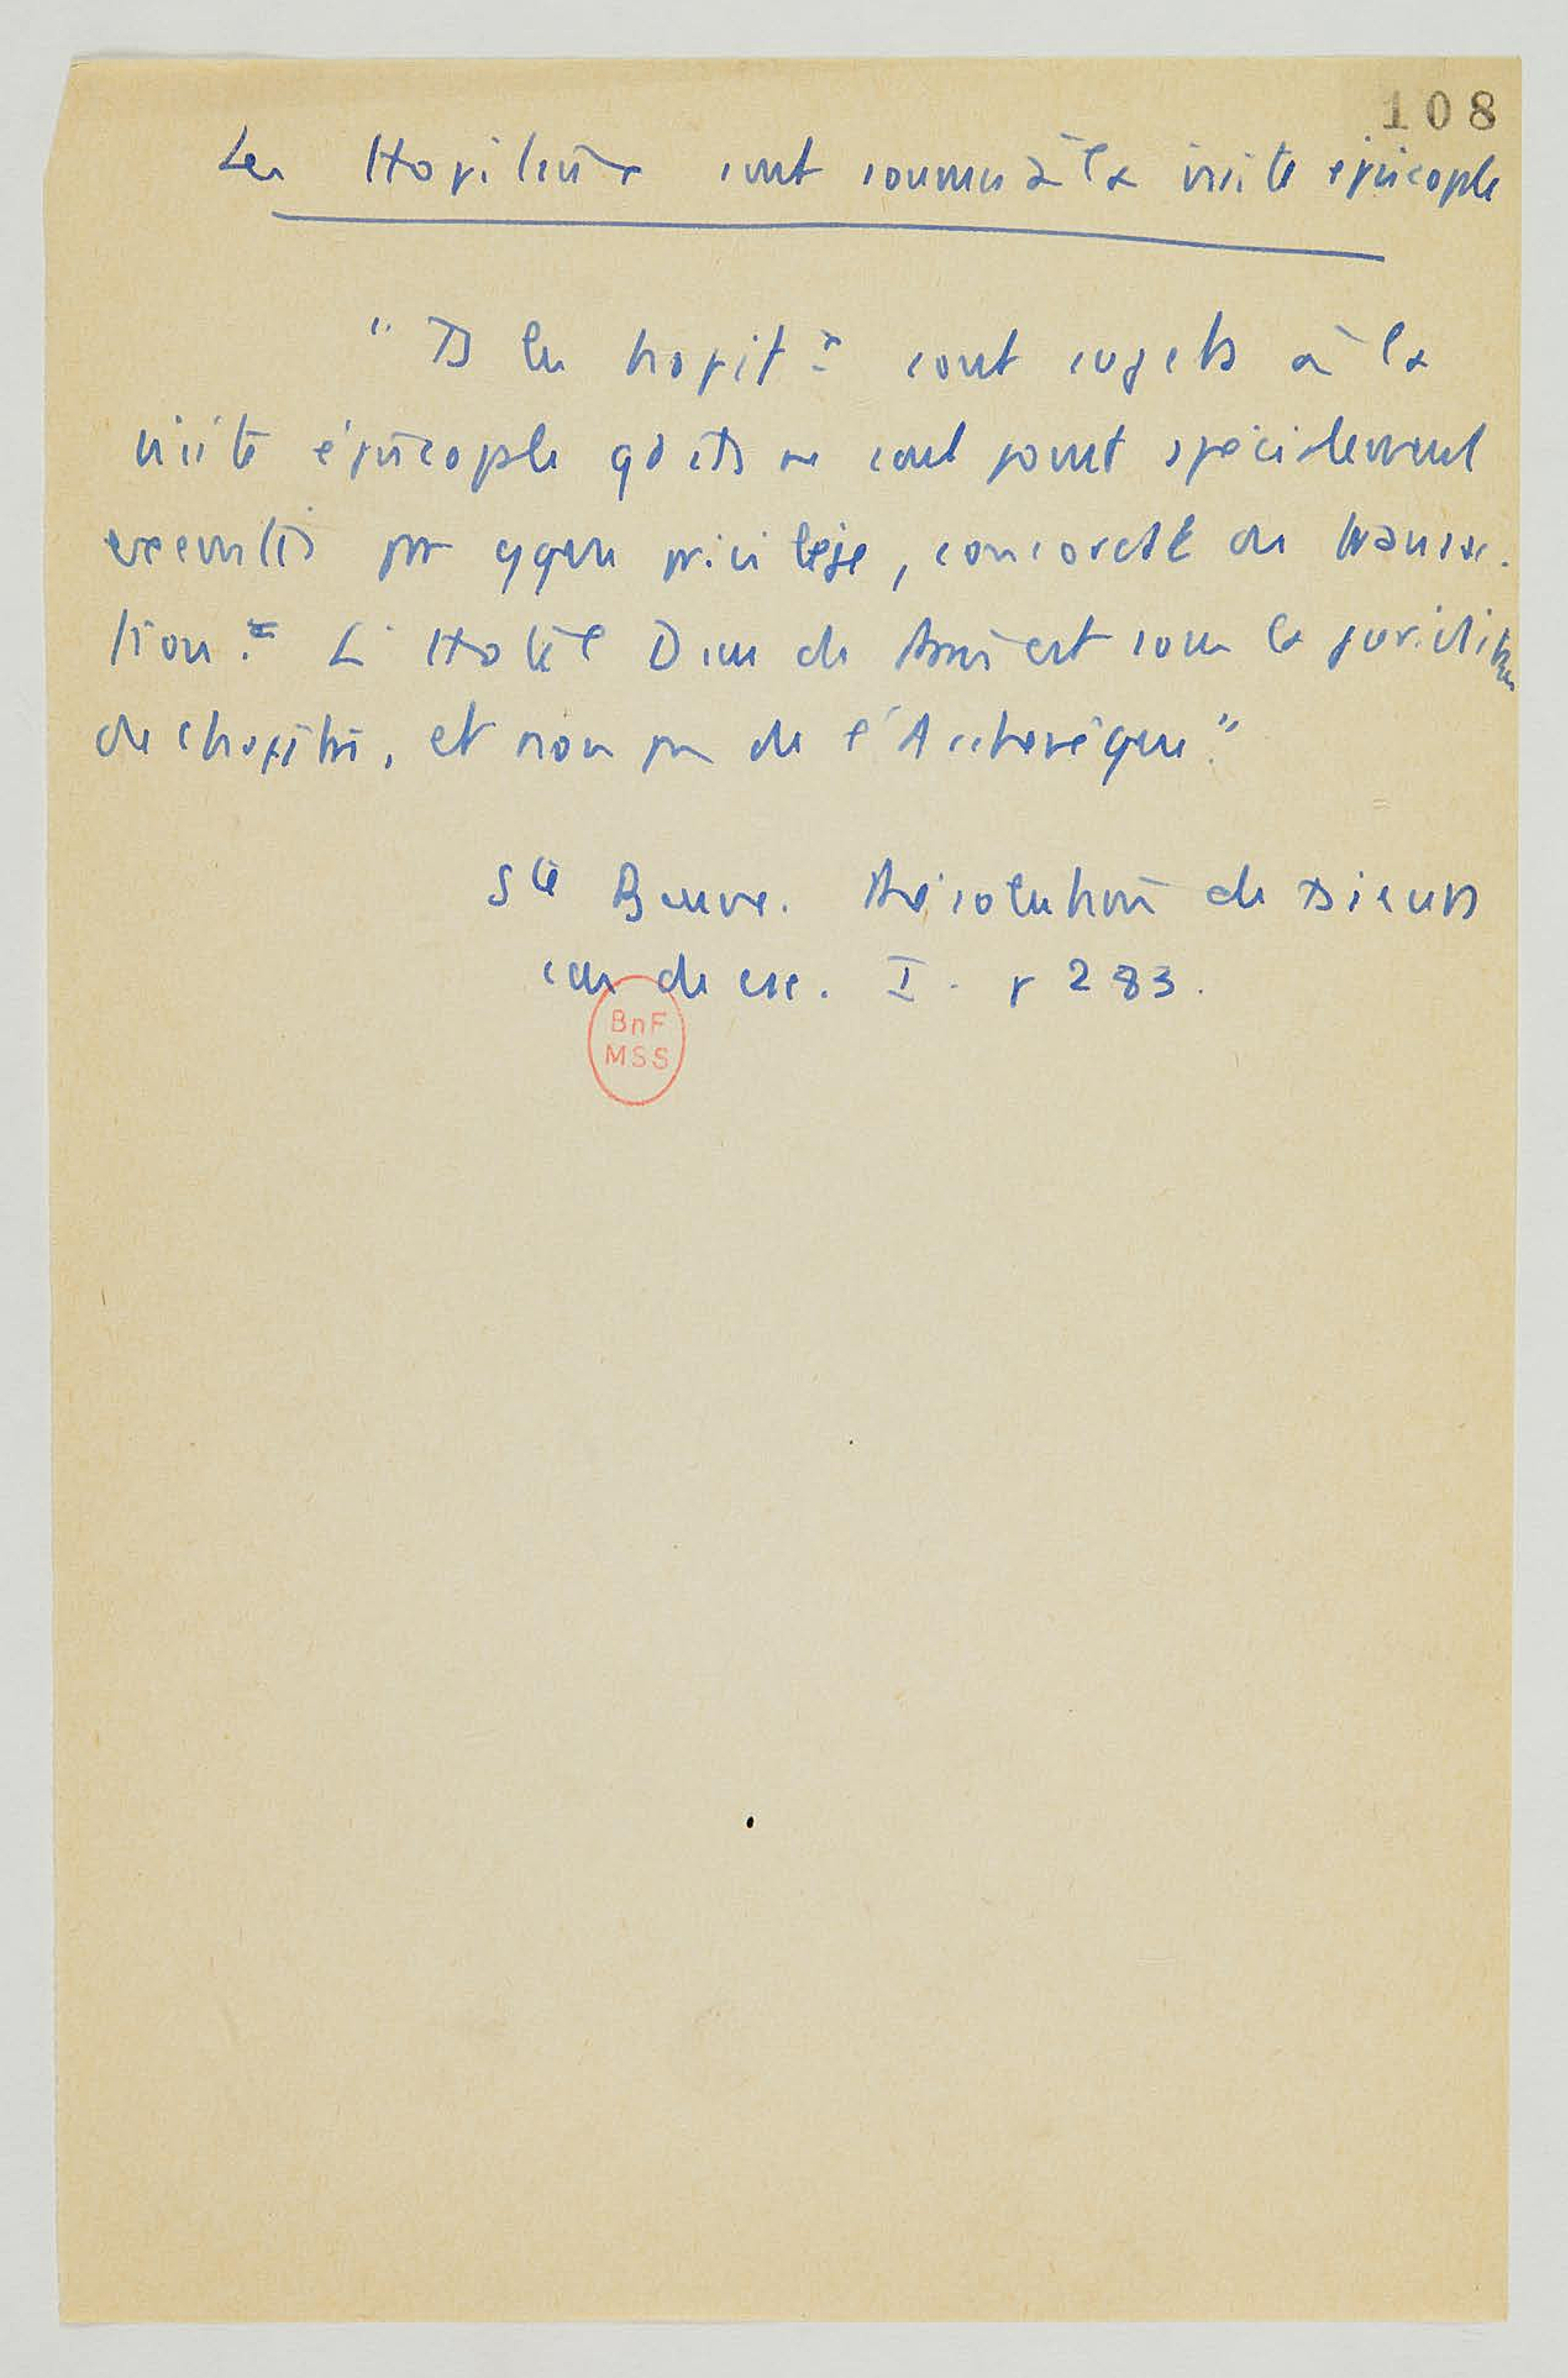 108
Les Hopitaux sont soumis à la visite épiscople
" Ts les hopitx sont sujets à la
visite épiscople qd ils ne sont point spécialement
exemptés par qque privilège, concordat ou transac-
tion. = L'Hotel Dieu de est sous la juridiction
du chapitre, et non pas de l'Archevêque."
Ste Beuve. Résolution de Divers
cas de csc. I. p 283.
BnF
MSS